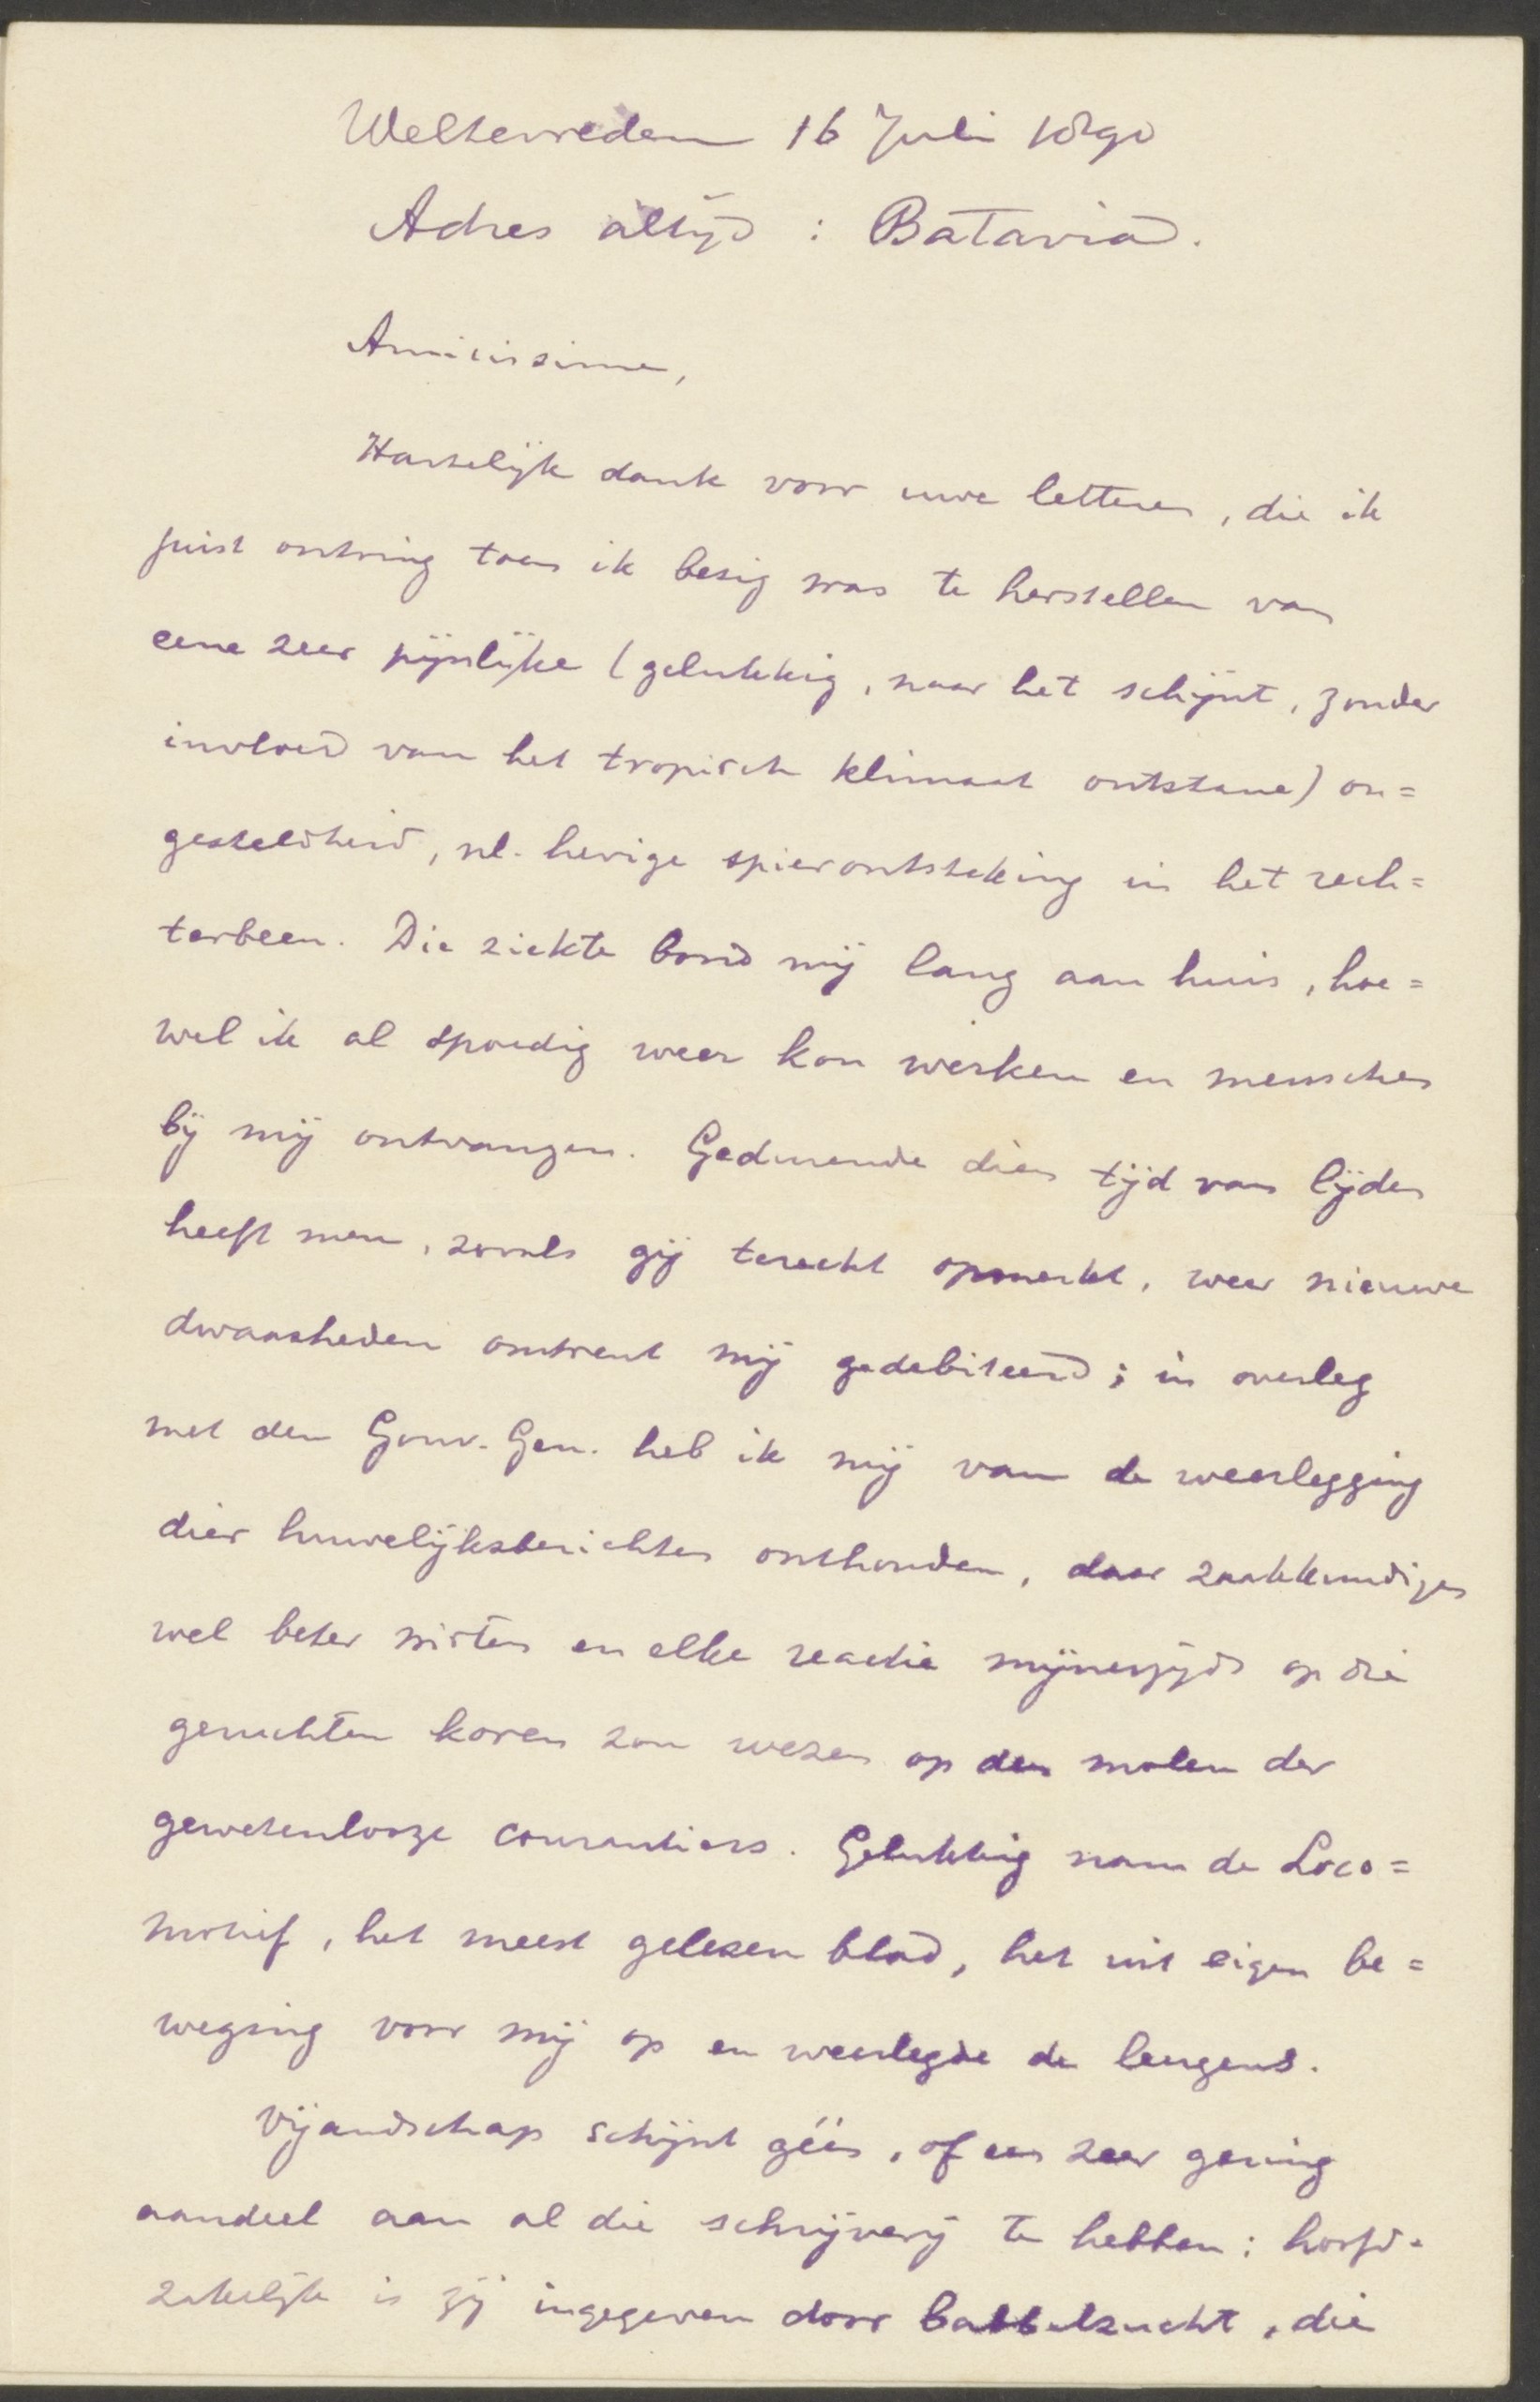 Weltevreden 16 Juli 1890
Adres altijd : Batavia.
Amicissime,
Hartelijk dank voor uwe letteren, die ik
juist ontving toen ik bezig was te herstellen van
eene zeer pijnlijke (gelukkig, naar het schijnt, zonder
invloed van het tropisch klimaat ontstane) on=
gesteldheid, nl. hevige spierontsteking in het rech=
terbeen. Die ziekte bond mij lang aan huis, hoe=
wel ik al spoedig weer kon werken en menschen
bij mij ontvangen. Gedurende dien tijd van lijden
heeft men, zooals gij terecht opmerkt, weer nieuwe
dwaasheden omtrent mij gedebiteerd; in overleg
met den Gouv. Gen. heb ik mij van de weerlegging
dier huwelijksberichten onthouden, daar zaakkundigen
wel beter wisten en elke reactie mijnerzijds op die
geruchten koren zou wezen op den molen der
gewetenlooze courantiers. Gelukkig nam de Loco=
motief, het meest gelezen blad, het uit eigen be=
weging voor mij op en weerlegde de leugens.
Vijandschap schijnt géén, of een zeer gering
aandeel aan al die schrijverij te hebben; hoofd-
zakelijk is zij ingegeven door babbelzucht, die